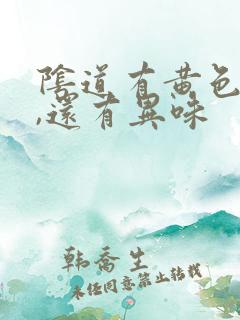 陰道有黄色
,還有異味
韩乔生
未经同意禁止转载